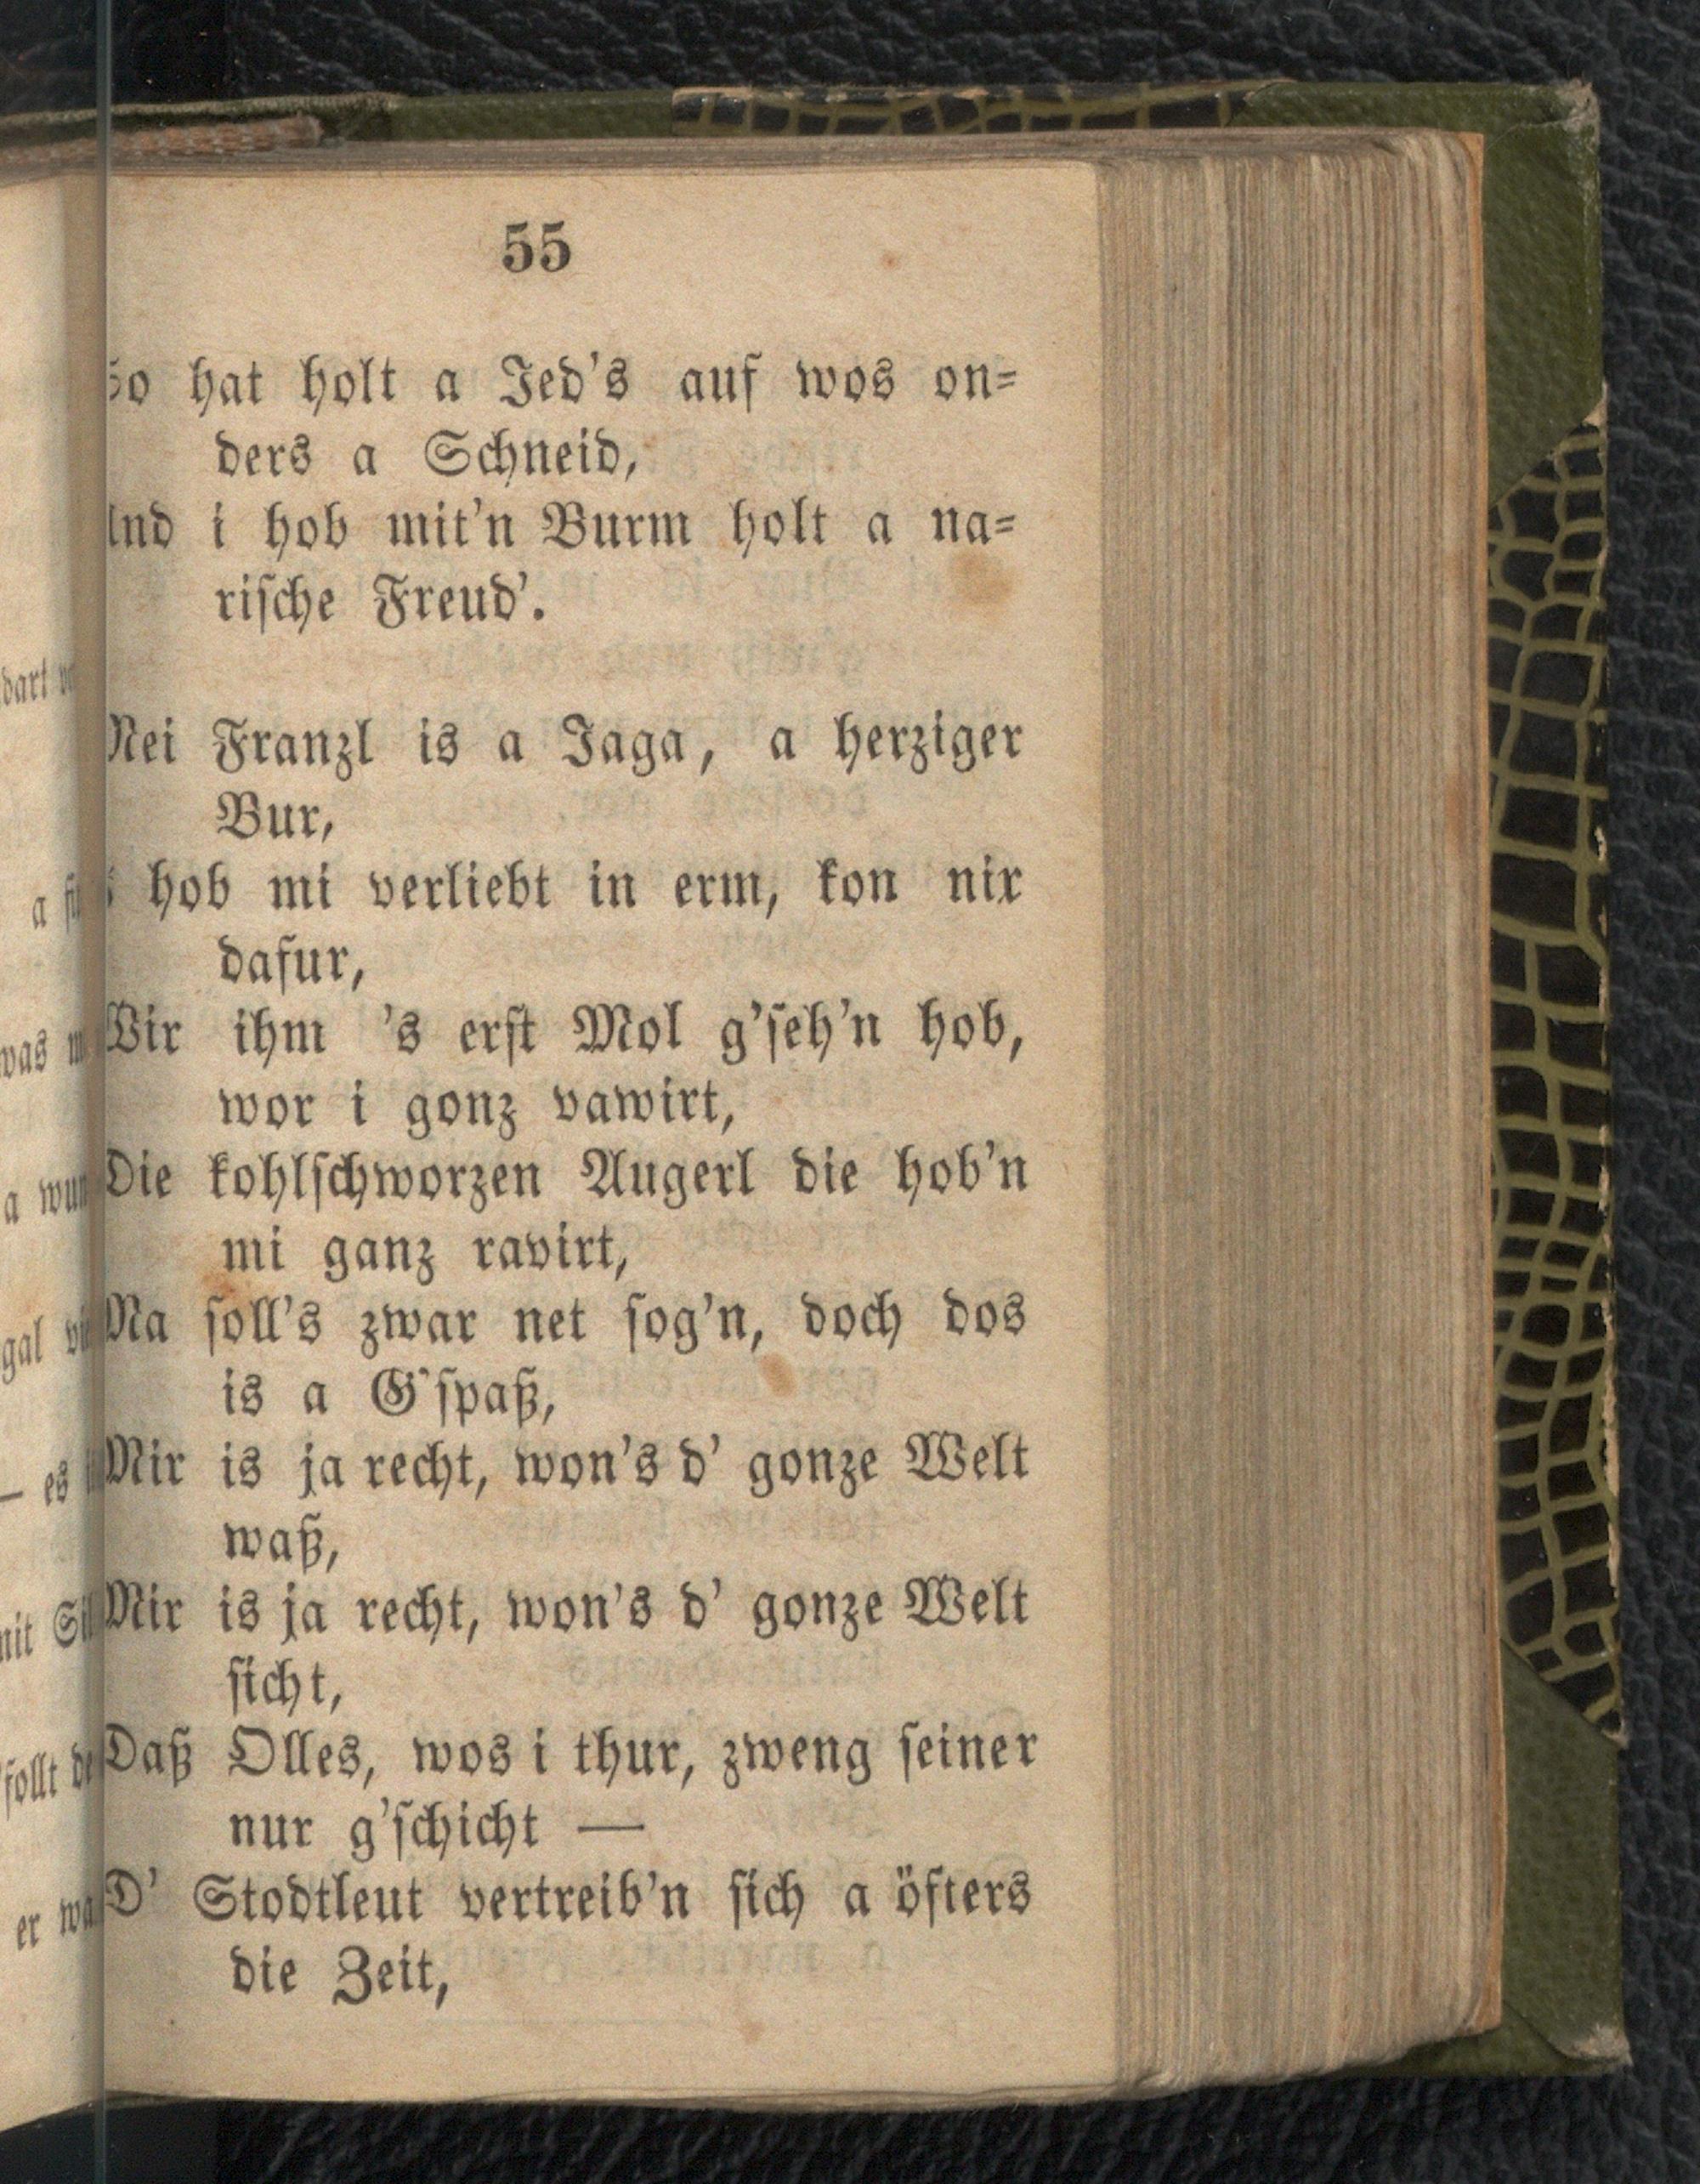 55
So hat holt a Jed's auf wos on=
ders a Schneid,
Und i hob mit'n Burm holt a na=
rische Freud'.
Mei Franzl is a Jaga, a herziger
Bur,
hob mi verliebt in erm, kon nix
dafur,
Wir ihm 's erst Mol g'seh'n hob,
wor i gonz vawirt,
Die kohlschworzen Augerl die hob'n
mi ganz ravirt,
Ma soll's zwar net sog'n, doch dos
is a G'spaß,
Mir is ja recht, won's d' gonze Welt
waß,
Mir is ja recht, won's d' gonze Welt
sicht,
Daß Olles, wos i thur, zweng seiner
nur g'schicht —
D' Stodtleut vertreib'n sich a öfters
die Zeit,